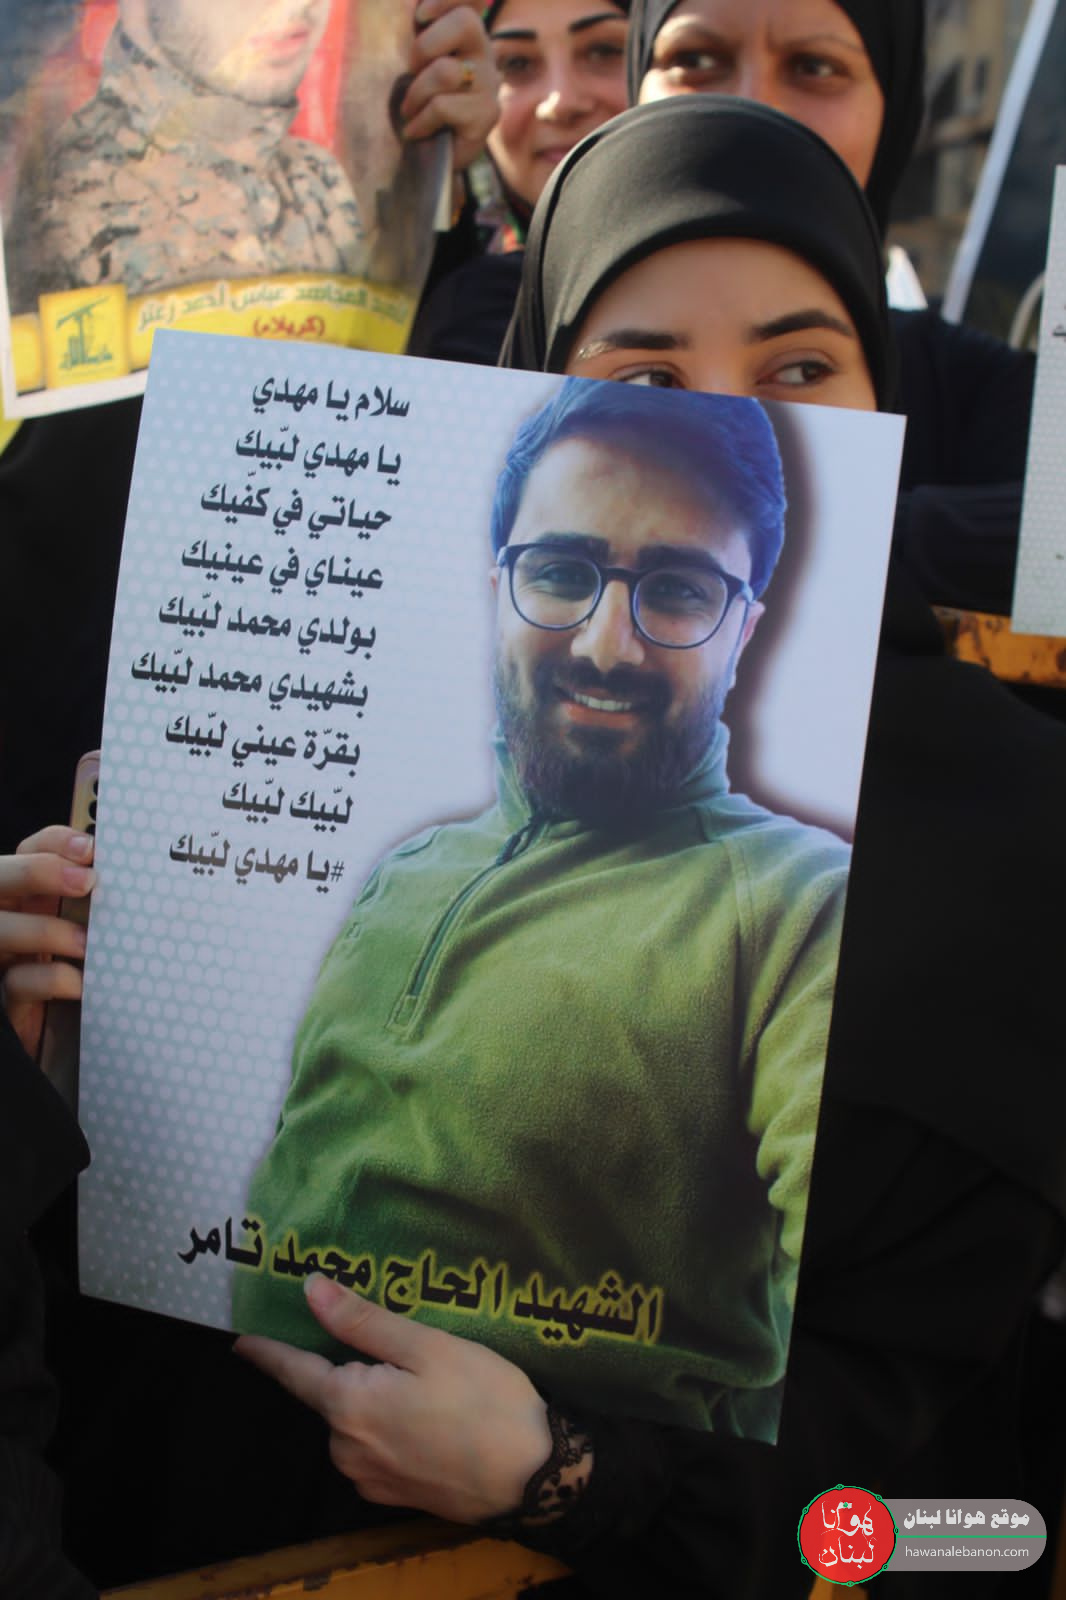 الشهيد المجاهد عباس احمد زعتر
(كربلاء)
سلام يا مهدي
يا مهدي لبّيك
حياتي في كفّيك
عيناي في عينيك
بولدي محمد لبّيك
بشهيدي محمد لبّيك
بقرّة عيني لبّيك
لبّيك لبّيك
#يا مهدي لبّيك
الشهيد الحاج محمد تامر
هوانا لبنان
موقع هوانا لبنان
hawanalebanon.com